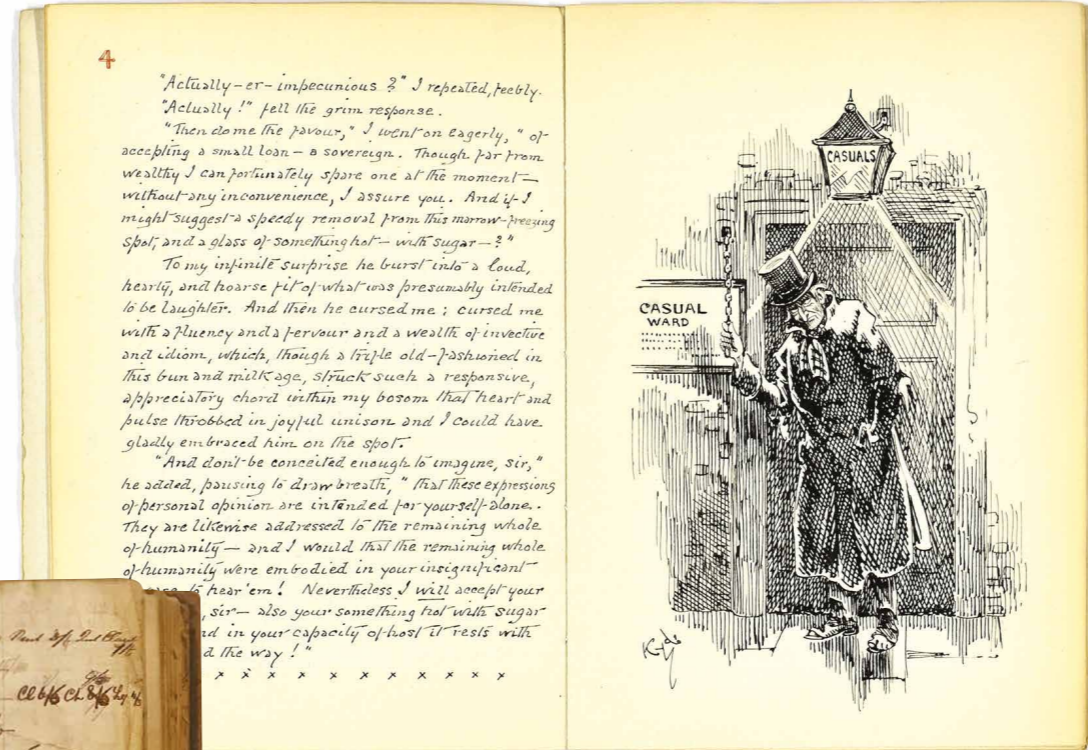 4
"Actually—er—impecunious?" I repeated, feebly.
"Actually!" fell the grim response.
"Then do me the favour," I went on eagerly, "of
accepting a small loan — a sovereign. Though far from
wealthy I can fortunately spare one at the moment—
without any inconvenience, I assure you. And if I
might suggest a speedy removal from this marrow-freezing
spot, and a glass of something hot — with sugar —?"
To my infinite surprise he burst into a loud,
hearty, and hoarse fit of what was presumably intended
to be laughter. And then he cursed me; cursed me
with a fluency and a fervour and a wealth of invective
and idiom, which, though a trifle old-fashioned in
this bun and milk age, struck such a responsive,
appreciatory chord within my bosom that heart and
pulse throbbed in joyful unison and I could have
gladly embraced him on the spot.
"And don't be conceited enough to imagine, sir,"
he added, pausing to draw breath, "that these expressions
of personal opinion are intended for yourself alone.
They are likewise addressed to the remaining whole
of humanity — and I would that the remaining whole
of humanity were embodied in your insignificant
to hear 'em! Nevertheless I will accept your
, sir — also your something hot with sugar
in your capacity of host it rests with
the way!"
x x x x x x x x x x x x
CASUALS
CASUAL
WARD
Kyd